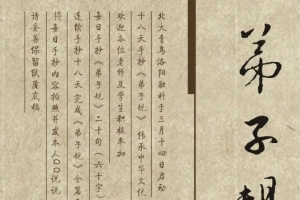 弟子
北大青鸟洛阳融科于三月十四日启动
十八天手抄《弟子规》传承中华文化
欢迎各位老师及学生积极参加
每日手抄《弟子规》二十句（六十字）
连续手抄十八天完成《弟子规》全篇
将每日手抄内容拍照并发本人QQ说说
请妥善保留纸质底稿